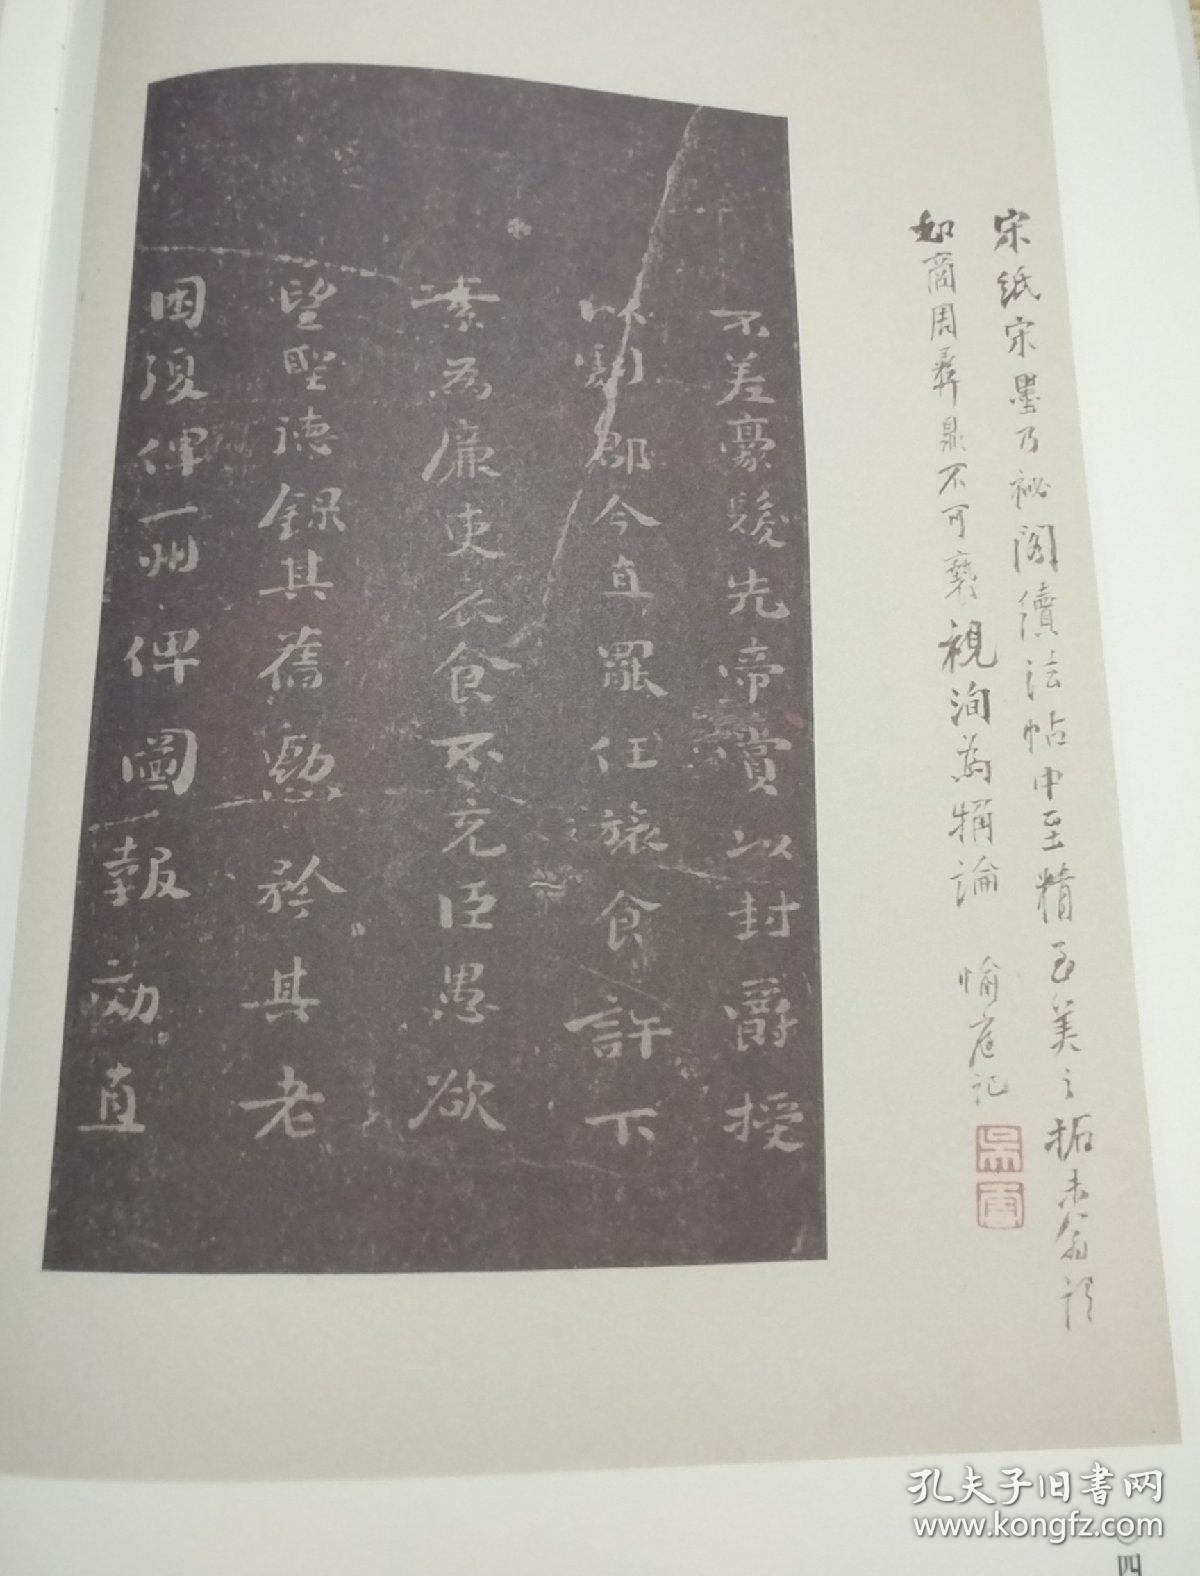 宋紙宋墨乃祕閣續法帖中至精至美之拓未翁謂
如商周彝鼎不可褻視洵為犕論 愉庭記
吳雲
不差豪髮先帝賞以封爵授
以劇郡今直罷任旅食許下
素為廉吏衣食不充臣愚欲
望聖德錄其舊勳矜其老
困復俾一州俾圖報効直
孔夫子旧书网
www.kongfz.com
四